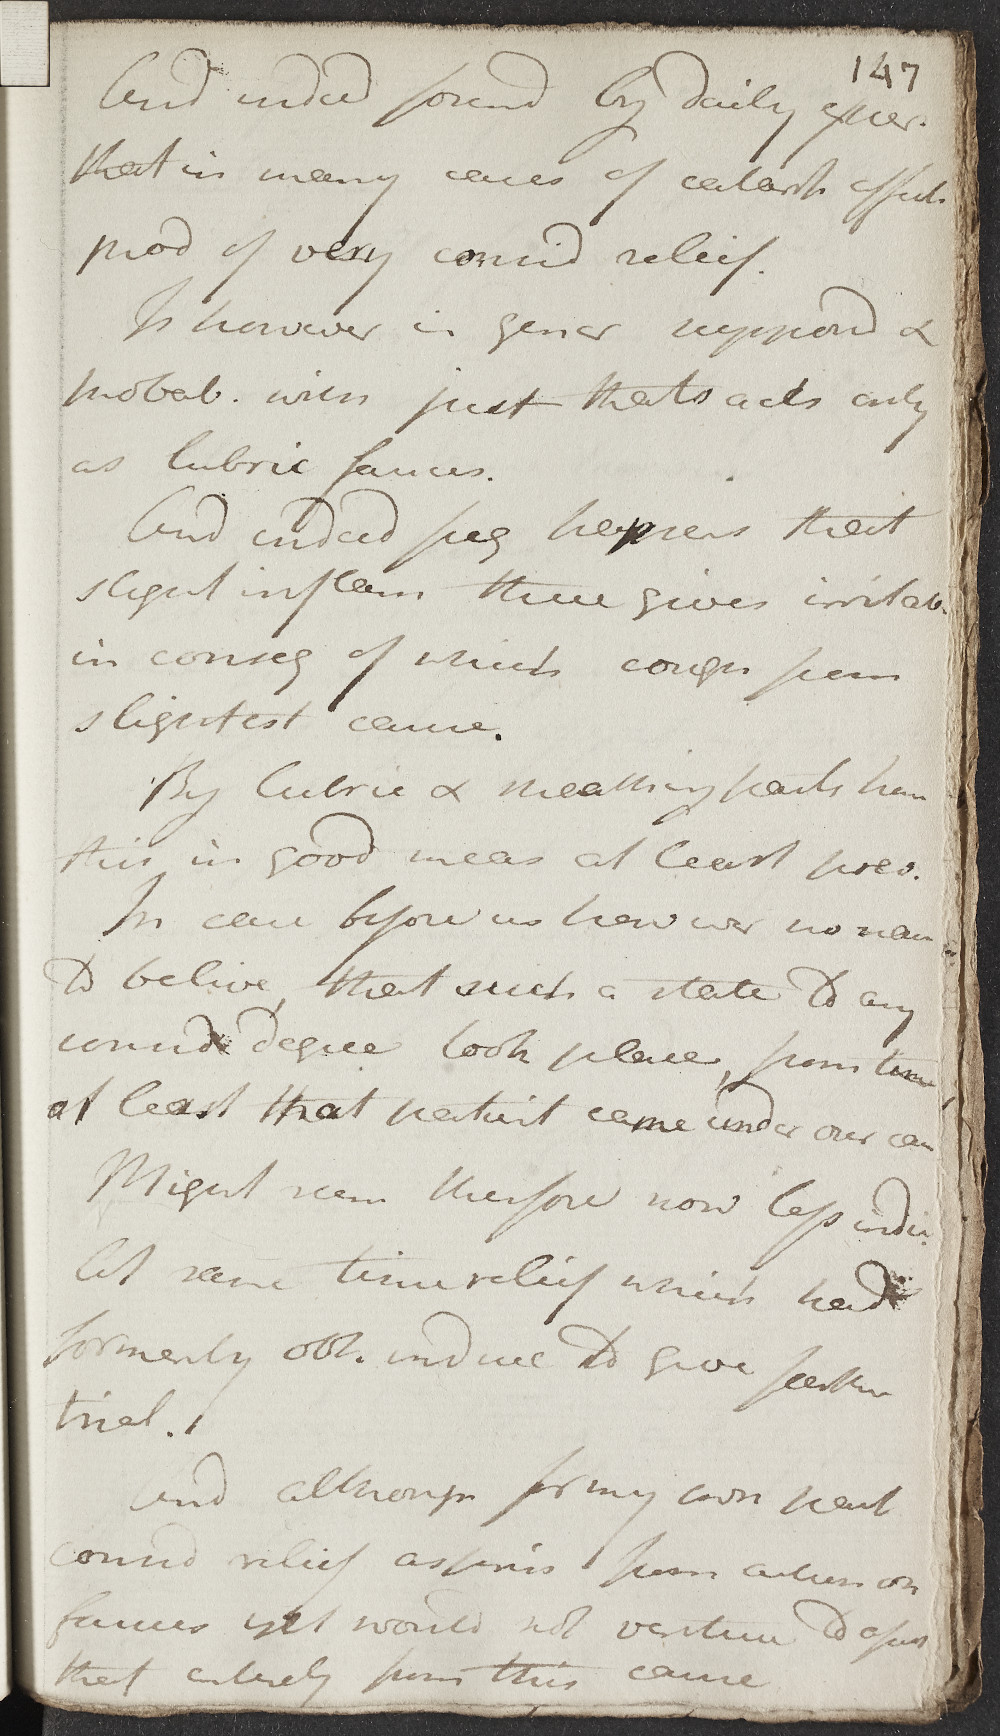 147
And indeed found by daily exper.
that in many cases of catarrh effects
prod of very consid relief.
Is however in gener suppos'd &
probab. with just that acts only
as lubric fauces.
And indeed freq happens that
slight inflam there gives irritab.
in conseq of which cough from
slightest cause.
By lubric & sheathing parts from
this in good meas at least prev.
In case before us however no reason
to believe, that such a state to any
consid degree took place, from time
at least that patient came under our care
Might seem therefore now less indic.
At same time relief which had
formerly obt. induce to give farther
trial.
And although for my own part
consid relief as from action on
fauces yet would not venture to
that entirely from this cause